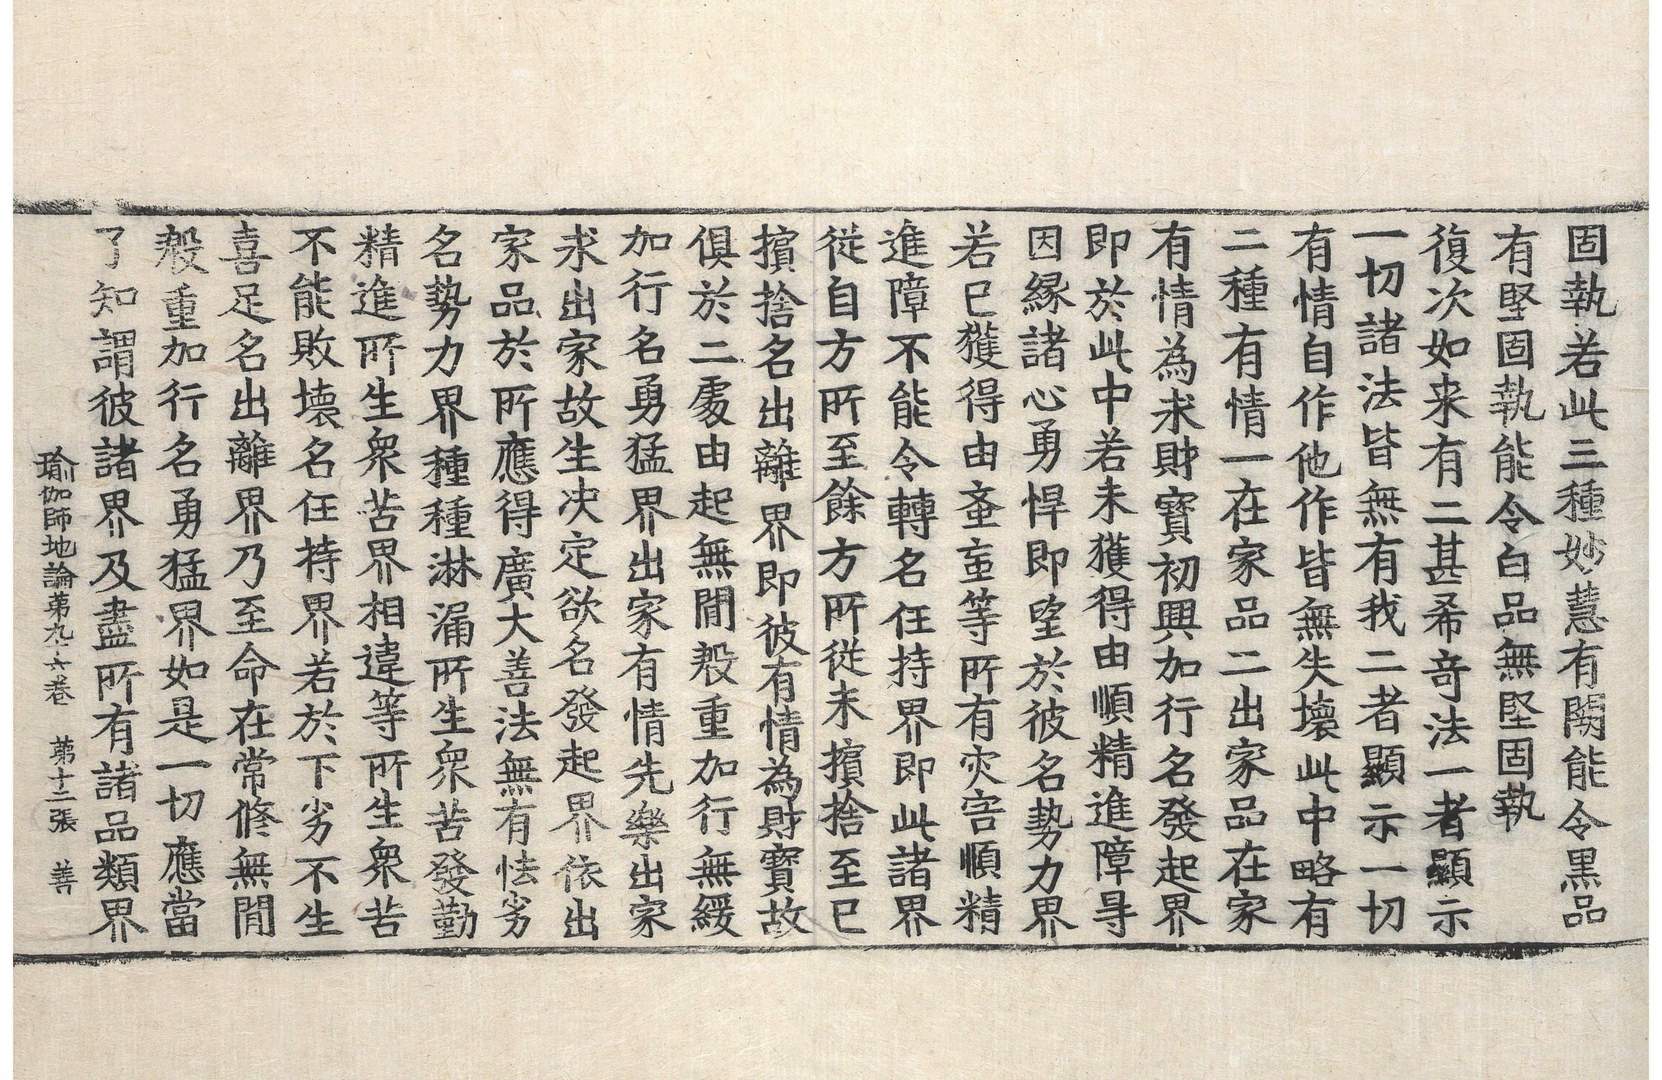 固執若此三種妙慧有闕能令黒品
有堅固執能令白品無堅固執
復次如来有二甚希竒法一者顯示
一切諸法皆無有我二者顯示一切
有情自作他作皆無失壞此中略有
二種有情一在家品二出家品在家
有情為求財寶初興加行名發起界
即於此中若未獲得由順精進障㝵
因縁諸心勇悍即望於彼名勢力界
若已獲得由王等所有灾害順精
進障不能令轉名任持界即此諸界
従自方所至餘方所従未擯捨至已
擯捨名出離界即彼有情為財寶故
俱於二處由起無間殺重加行無緩
加行名勇猛界出家有情先樂出家
求出家故生决定欲名發起界依出
家品於所應得廣大善法無有怯劣
名勢力界種種淋漏所生衆苦發勤
精進所生衆苦界相違等所生衆苦
不能敗壞名任持界若於下劣不生
喜足名出離界乃至命在常修無間
殺重加行名勇猛界如是一切應當
了知謂彼諸界及盡所有諸品類界
瑜伽師地論第九十六卷　第十二張　善